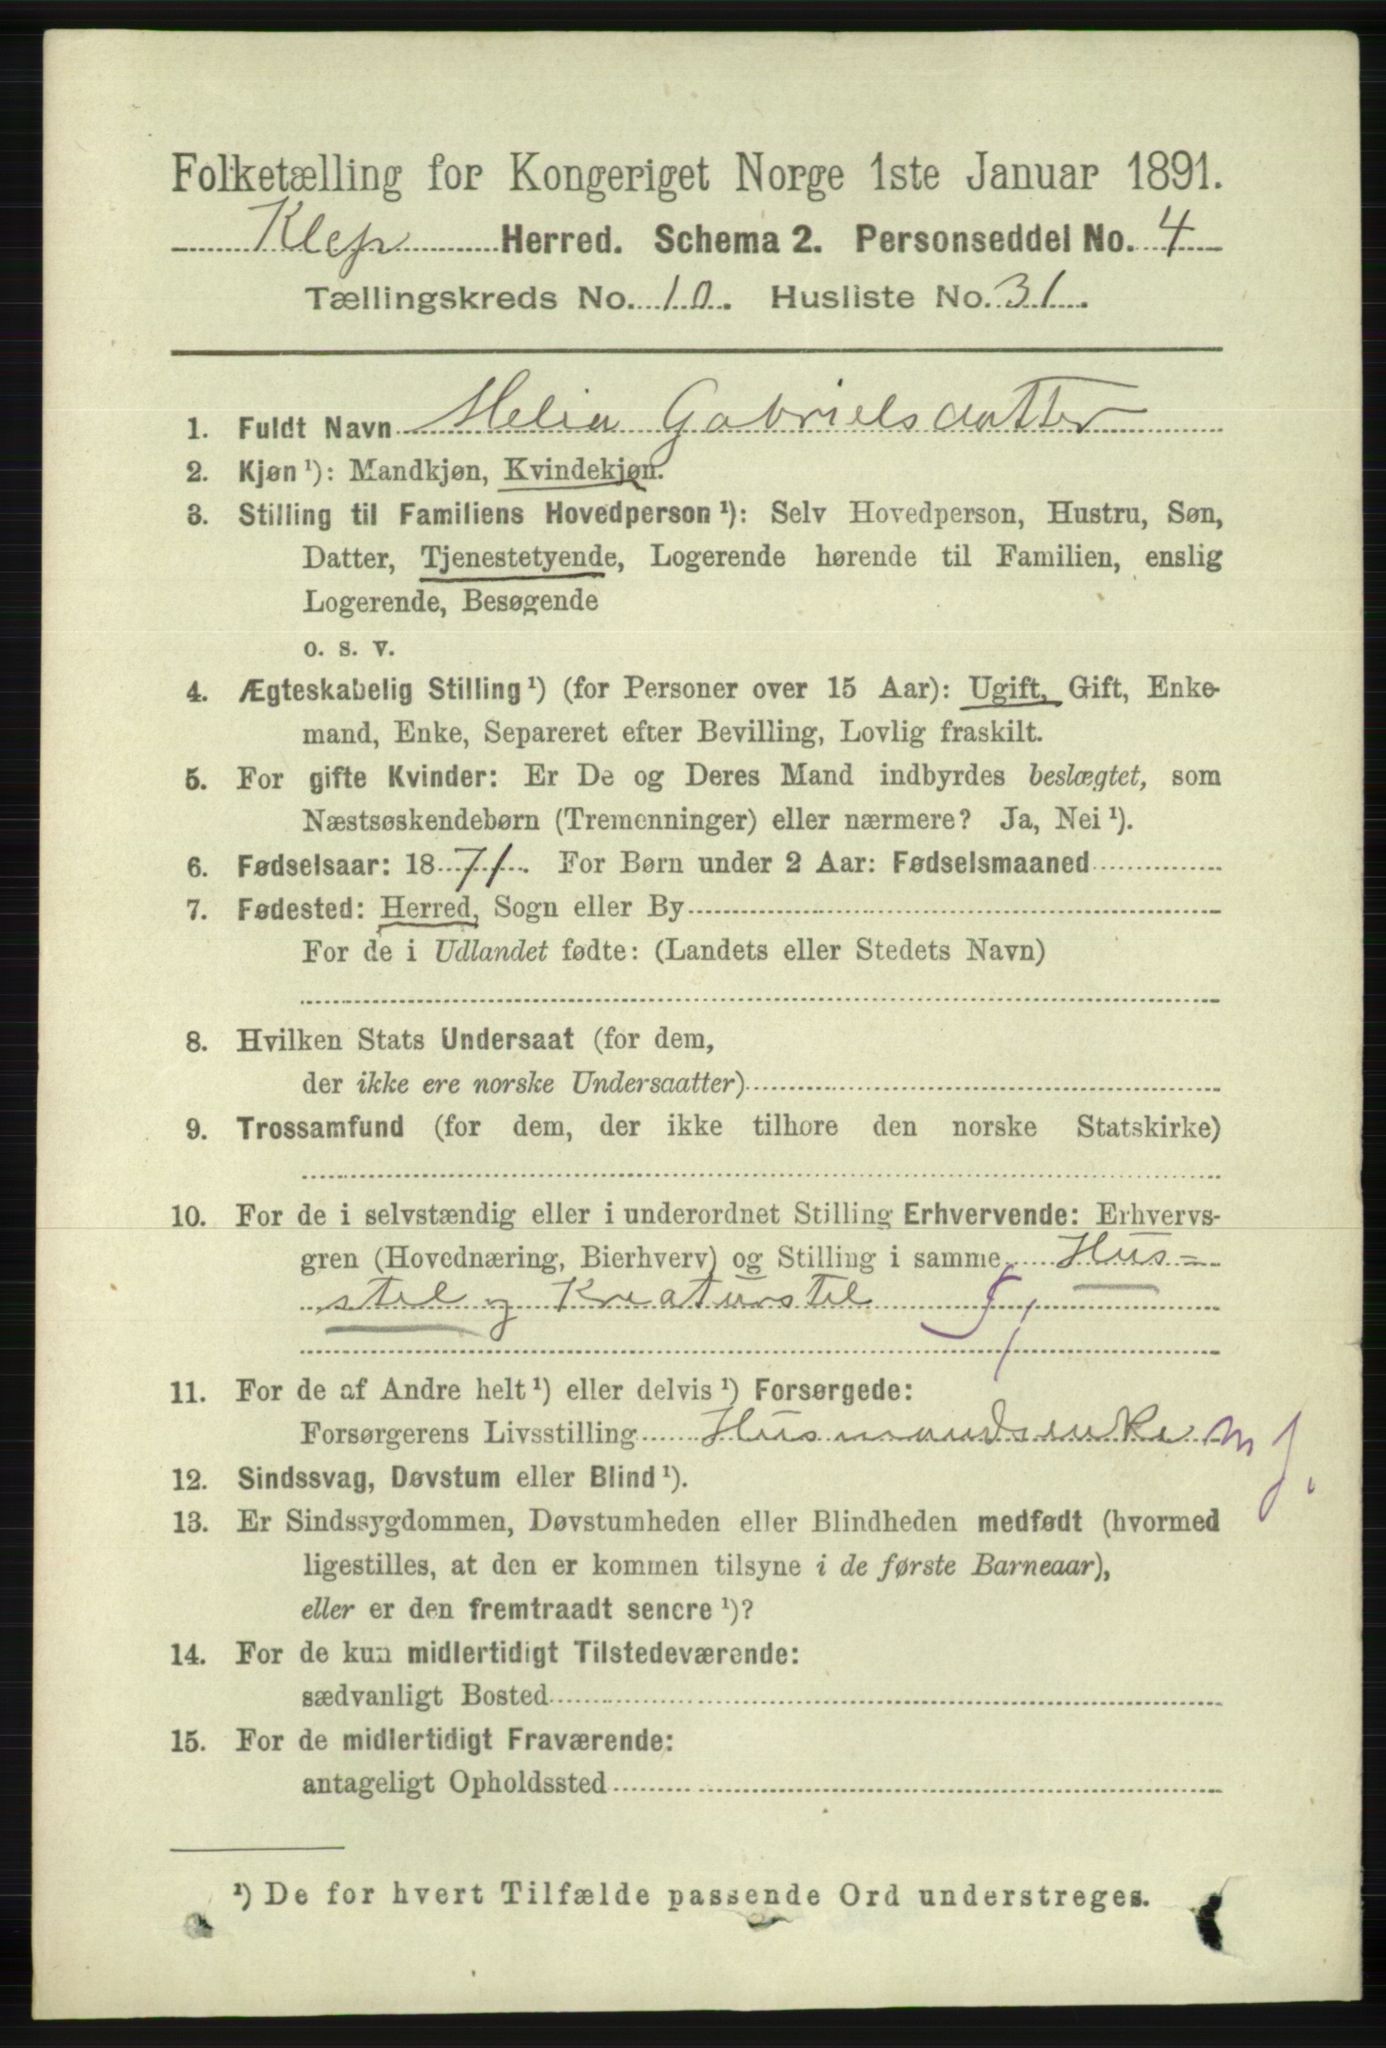 Folketælling for Kongeriget Norge 1ste Januar 1891.
Klep Herred. Schema 2. Personseddel No. 4
Tællingskreds No. 10. Husliste No. 31.
1. Fuldt Navn Helia Gabrielsdatter
2. Kjøn ¹): Mandkjøn, Kvindekjøn.
3. Stilling til Familiens Hovedperson ¹): Selv Hovedperson, Hustru, Søn,
Datter, Tjenestetyende, Logerende hørende til Familien, enslig
Logerende, Besøgende
o. s. v.
4. Ægteskabelig Stilling ¹) (for Personer over 15 Aar): Ugift, Gift, Enke-
mand, Enke, Separeret efter Bevilling, Lovlig fraskilt.
5. For gifte Kvinder: Er De og Deres Mand indbyrdes beslægtet, som
Næstsøskendebørn (Tremenninger) eller nærmere? Ja, Nei ¹).
6. Fødselsaar: 1871. For Børn under 2 Aar: Fødselsmaaned
7. Fødested: Herred, Sogn eller By
For de i Udlandet fødte: (Landets eller Stedets Navn)
8. Hvilken Stats Undersaat (for dem,
der ikke ere norske Undersaatter)
9. Trossamfund (for dem, der ikke tilhøre den norske Statskirke)
10. For de i selvstændig eller i underordnet Stilling Erhvervende: Erhvervs-
gren (Hovednæring, Bierhverv) og Stilling i samme Hus=
stel og Kreaturstel
11. For de af Andre helt ¹) eller delvis ¹) Forsørgede:
Forsørgerens Livsstilling Husmandsenke m J.
12. Sindssvag, Døvstum eller Blind ¹).
13. Er Sindssygdommen, Døvstumheden eller Blindheden medfødt (hvormed
ligestilles, at den er kommen tilsyne i de første Barneaar),
eller er den fremtraadt senere ¹)?
14. For de kun midlertidigt Tilstedeværende:
sædvanligt Bosted
15. For de midlertidigt Fraværende:
antageligt Opholdssted
¹) De for hvert Tilfælde passende Ord understreges.